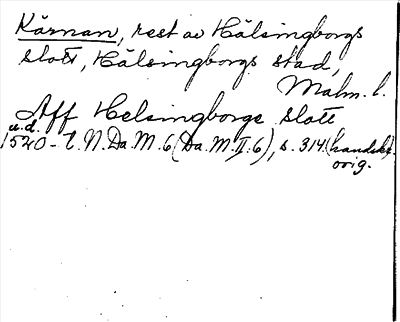 Kärnan, rest av Hälsingborgs
slott, Hälsingborgs stad,
Malm. l.
Aff Helsingborgs slott
u.d.
1520- t. N. Da. M. 6 (Da. M. II: 6), s. 314. (handskr.
orig.